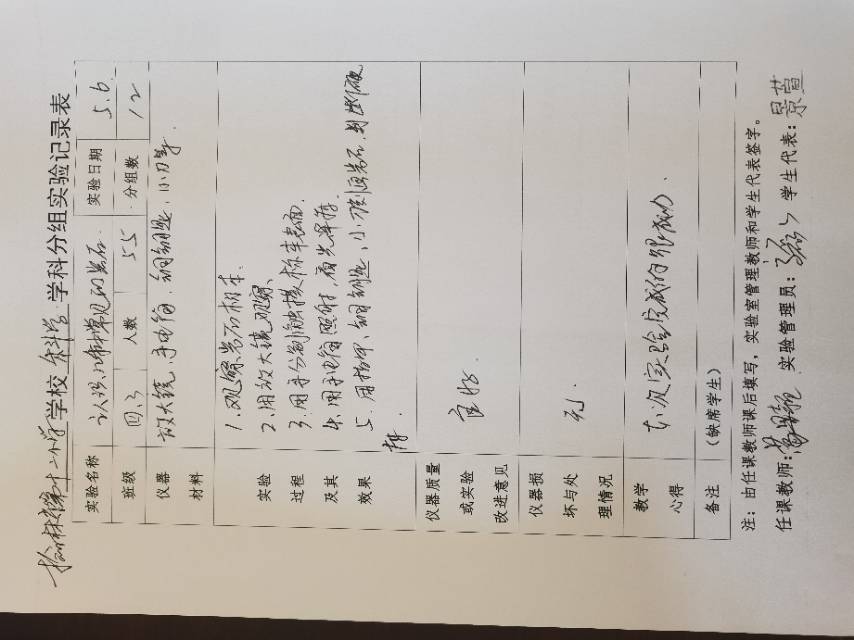 榆林市第十二小学学校 科学 学科分组实验记录表
实验名称 认识几种常见的岩石 实验日期 5.6
班级 四.3 人数 55 分组数 12
仪器材料 放大镜、手电筒、铜钥匙、小刀等.
实验过程及其效果 1.观察岩石标本.
2.用放大镜观察.
3.用手分别触摸标本表面.
4.用手电筒照射,看光泽.
5.用指甲、铜钥匙、小刀刻画岩石,判断硬
仪器质量或实验改进意见 良好.
仪器损坏与处理情况 无.
教学心得 本次实验完成的很成功.
备注 (缺席学生)
注:由任课教师课后填写,实验室管理教师和学生代表签字。
任课教师: 实验管理员: 学生代表:景萱